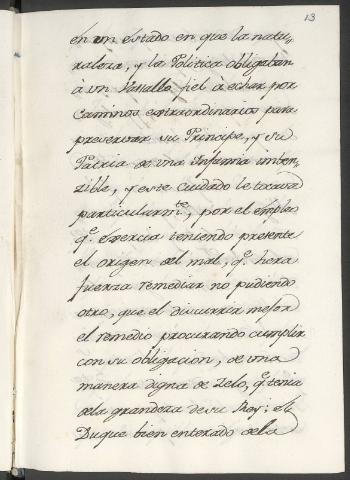 13
en un estado en que la natu-
raleza, y la Politica obligaban
à un Vasallo fiel à echar por
Caminos extraordinarios para
preservar su Principe, y su
Patria de una Infamia inben-
zible, y este cuidado le tocava
particularmte, por el empleo
qe exercia teniendo presente
el origen del mal, qe hera
fuerza remediar no pudiendo
otro, que el discurrir mejor
el remedio procurando cumplir
con su obligacion, de una
manera digna de Zelo, qe tenia
dela grandeza de su Rey; El
Duque bien enterado dela